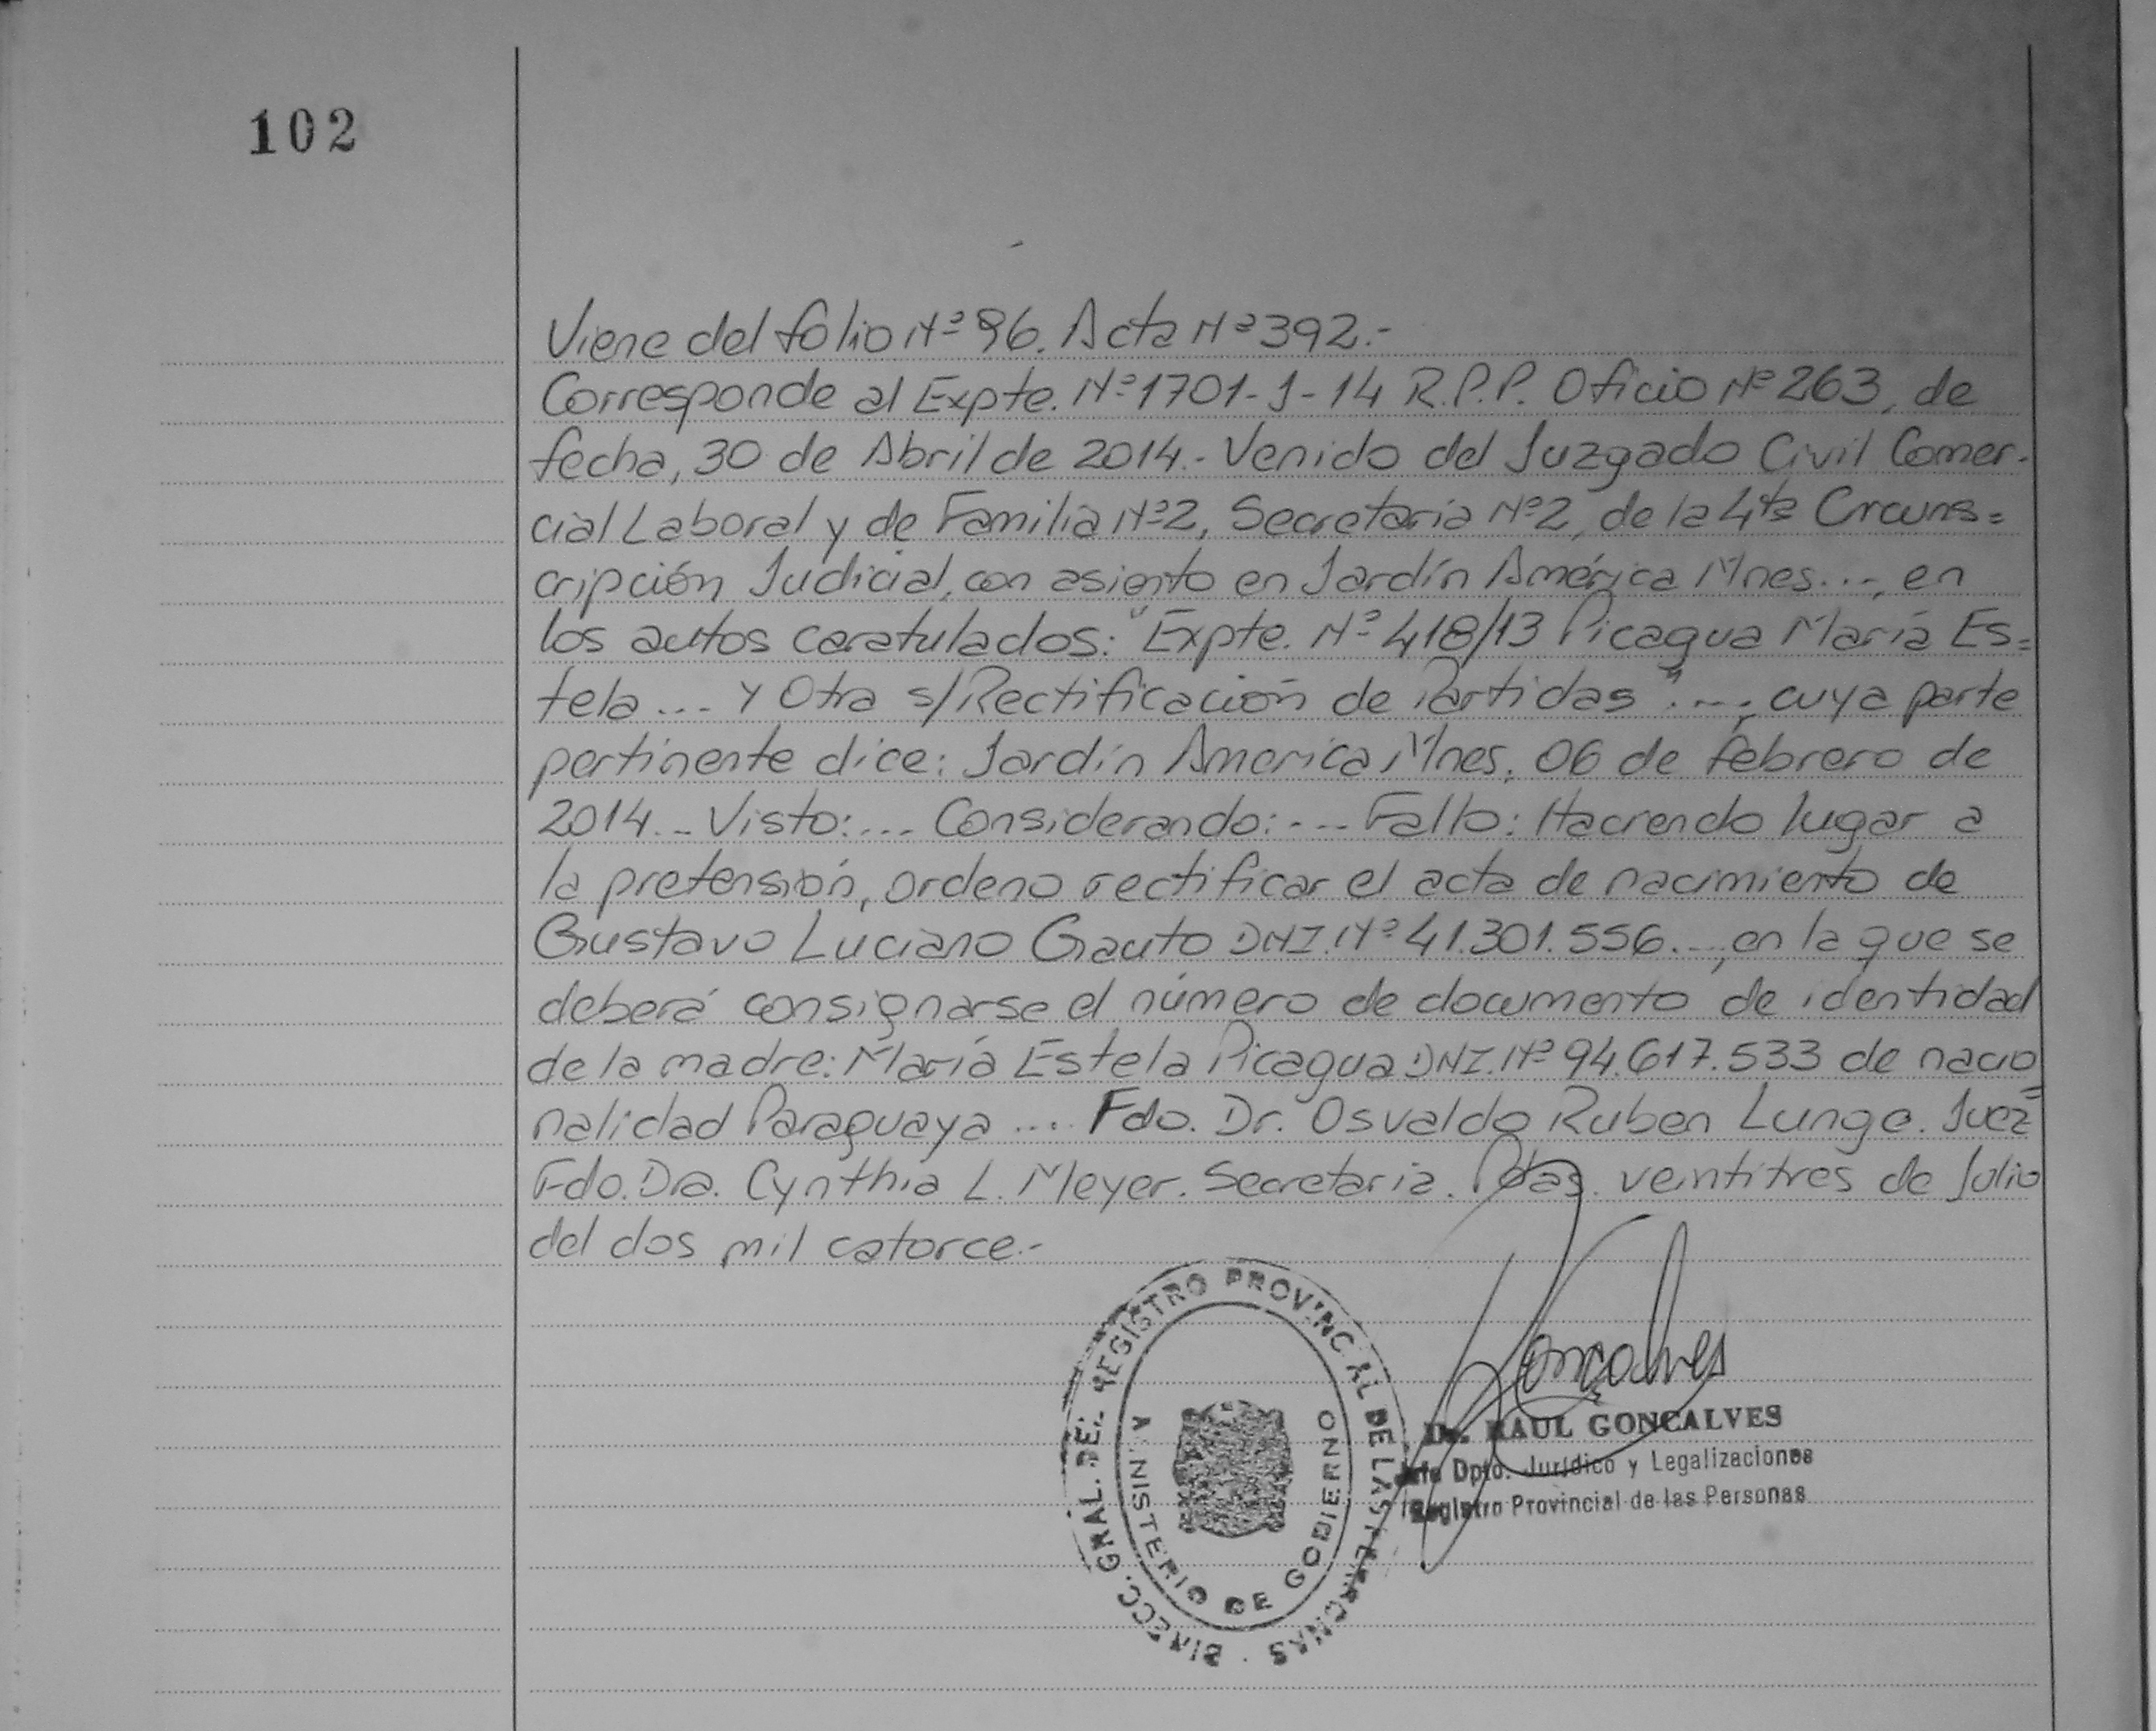 102
Viene del folio Nº 96. Acta Nº 392.-
Corresponde al Expte. Nº 1701-J-14 R.P.P. Oficio Nº 263, de
fecha, 30 de Abril de 2014.- Venido del Juzgado Civil Comer-
cial Laboral y de Familia Nº2, Secretaria Nº2, de la 4ta Circuns=
cripción Judicial, con asiento en Jardín América Mnes..., en
los autos caratulados: "Expte. Nº 418/13 Picagua María Es=
tela... y Otra s/Rectificación de Partidas"..., cuya parte
pertinente dice: Jardín America Mnes, 06 de febrero de
2014.- Visto:... Considerando:... Fallo: Haciendo lugar a
la pretensión, ordeno rectificar el acta de nacimiento de
Gustavo Luciano Gauto DNI. Nº 41.301.556..., en la que se
deberá consignarse el número de documento de identidad
de la madre: María Estela Picagua DNI. Nº 94.617.533 de nacio
nalidad Paraguaya ... Fdo. Dr. Osvaldo Ruben Lunge. Juez
Fdo. Dra. Cynthia L. Meyer. Secretaria. Pdas. veintitres de Julio
del dos mil catorce.-
DIRECC. GRAL. DEL REGISTRO PROVINCIAL DE LAS PERSONAS
MINISTERIO DE GOBIERNO
Goncalves
Dr. RAUL GONCALVES
Jefe Dpto. Jurídico y Legalizaciones
Registro Provincial de las Personas